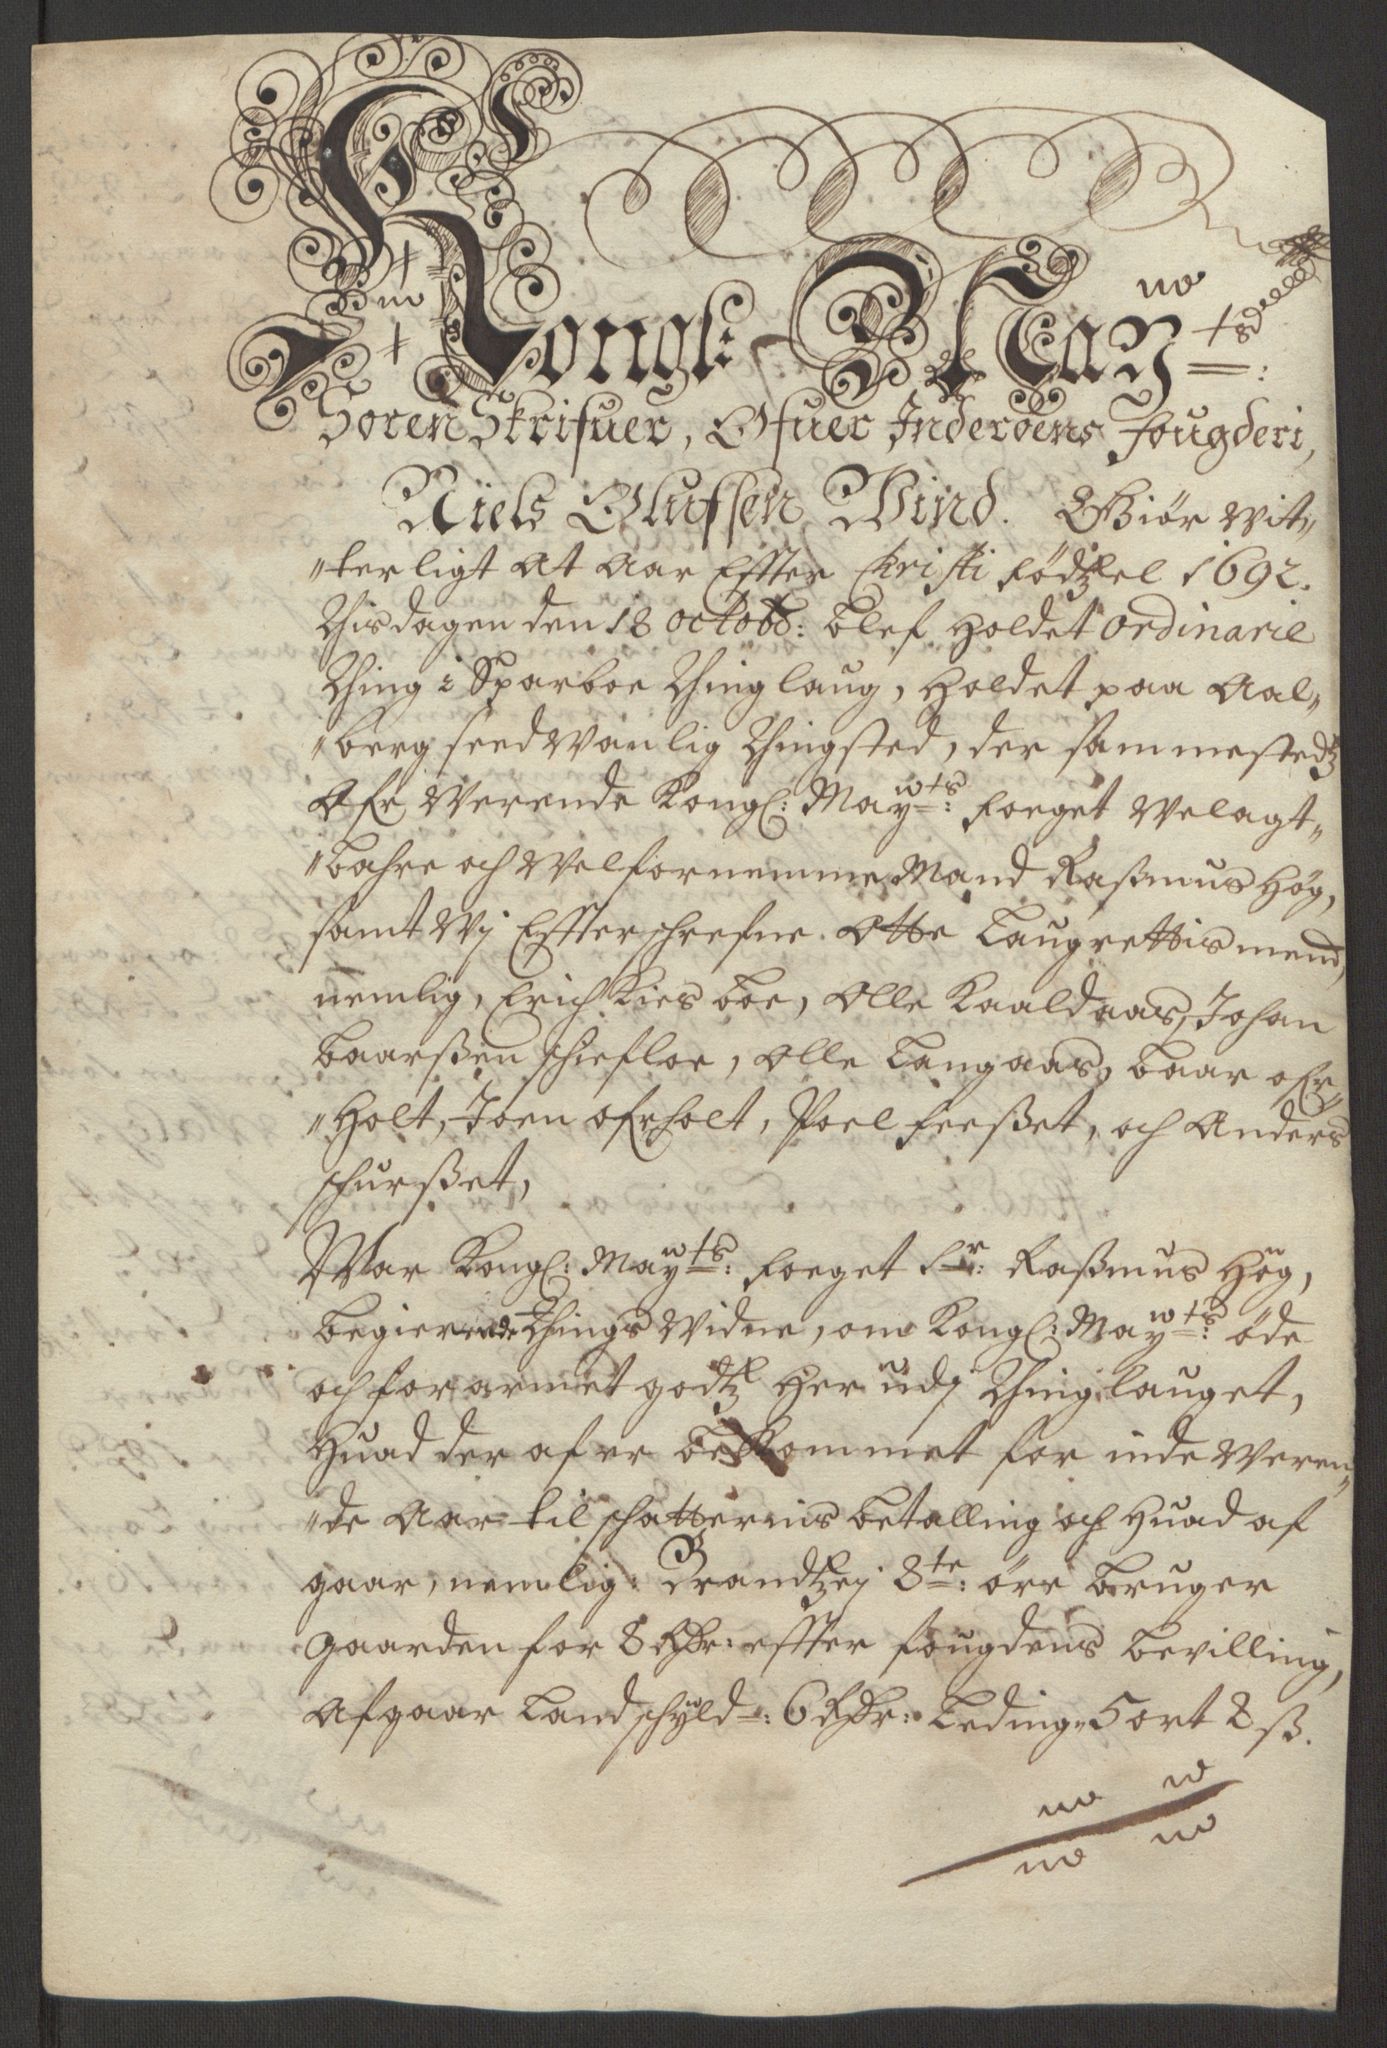 Kongl: Maÿ-ts:
Soren Skrifuer, Ofuer Inderöens Fougderi,
Niels Olufssen Wind. Giör wit„
„terligt at aar Effter Christi födtzel 1692.
Thisdagen den 18 octobr: blef Holdet ordinarie
Thing i Sparboe Thinglaug, Holdet paa Aal„
„berg seedwanlig Thingsted, der sammestedtz
Ofr werende Kongl: Maÿts: foeget Welagt„
„bahre och Welfornemme Mand Rasmus Hög,
samt Wj Effterschrefne Otte Laugrettismend,
nemlig, Erich Kiesboe, Olle Kaaldaas, Johan
Baarßen schiefloe, Olle Langaas, Baar ofr„
„Holt, Joen ofrholt, Poel feeßet, och Anders
schurßet,
War Kongl: Maÿts: foeget Sr: Raßmus Hög,
begierende Things Widne, om Kongl: Maÿts: öde
och forarmet godtz Her udj Thinglauget,
Huad der af er bekommet for inde weren„
„de Aar til schatternis betalling och Huad af
gaar, nemlig: Brandtzej 8te: öre bruger
gaarden for 8 Rdr: effter fougdens bevilling,
Afgaar Landschÿld: 6 Rdr: Leding 5 ort 8 ß.